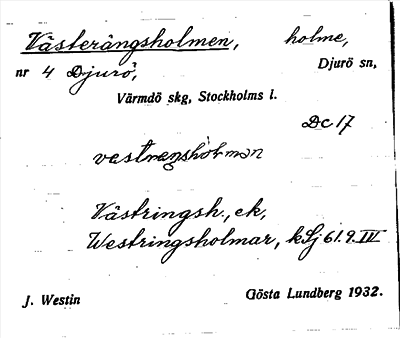 Västerängsholmen, holme,
nr 4 Djurö, Djurö sn,
Värmdö skg, Stockholms l.
Dc 17
vastrangsholmən
Västringsh., ek,
Westringsholmar, kSj 61.9.IV
J. Westin Gösta Lundberg 1932.